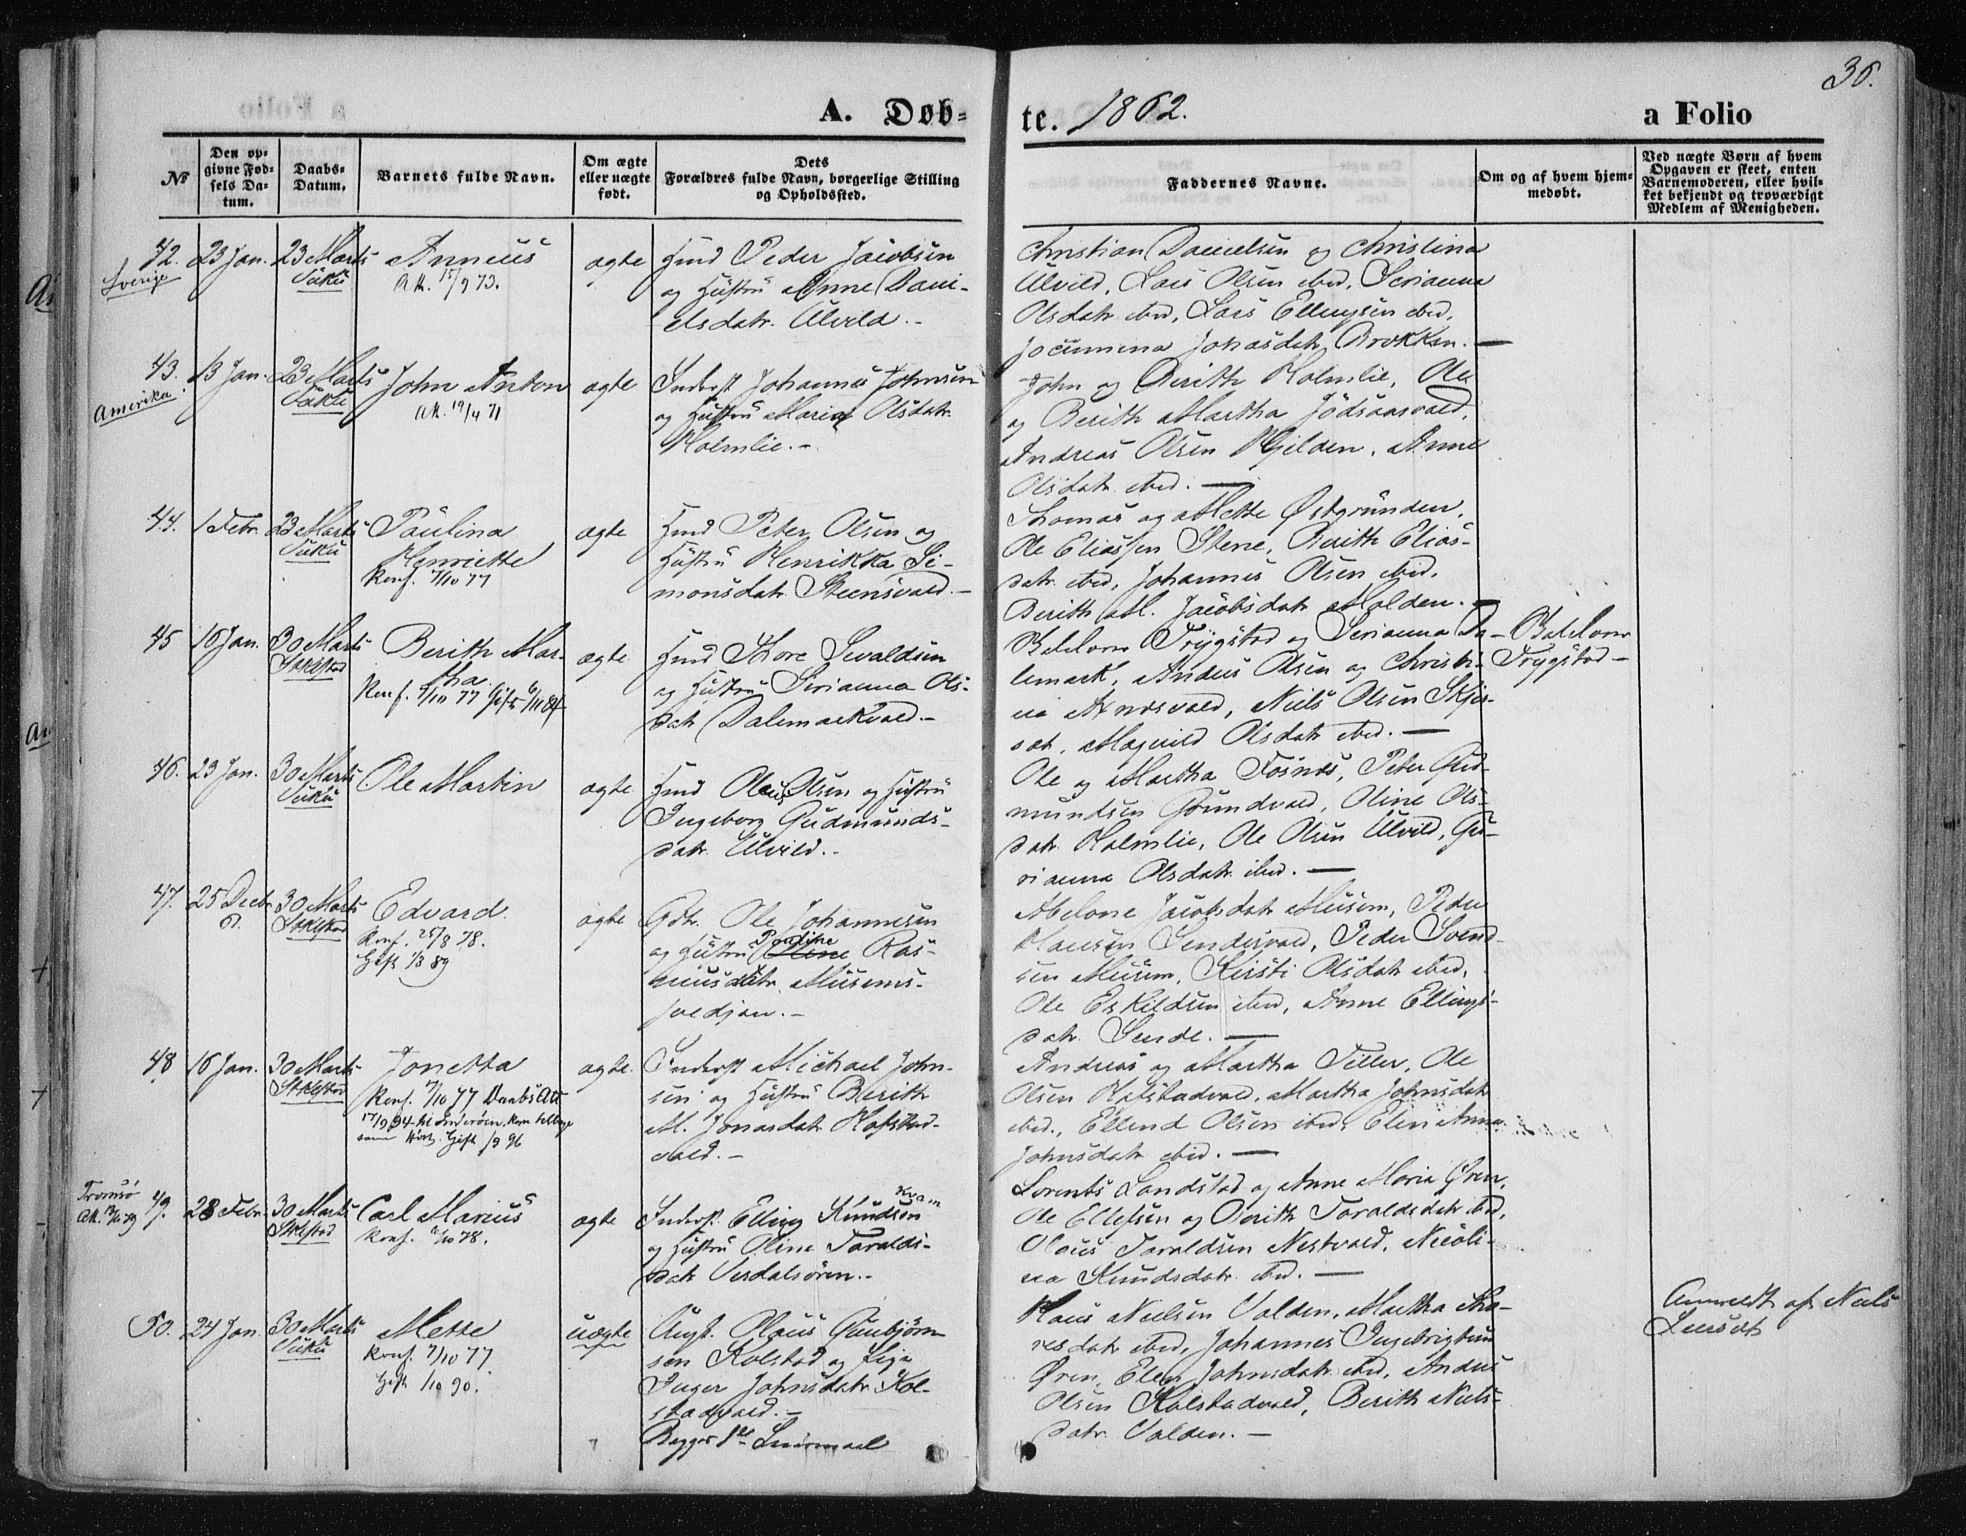 36.
a Folio
A. Døb-
te. 1862.
a Folio
No
Den op-
givne Fød-
sels Da-
tum.
Daabs-
Datum.
Barnets fulde Navn.
Om ægte
eller uægte
født.
Dets
Forældres fulde Navn, borgerlige Stilling
og Opholdssted.
Faddernes Navne.
Om og af hvem hjem-
medøbt.
Ved uægte Børn af hvem
Opgaven er skeet, enten
Barnemoderen, eller hvil-
ket bekjendt og troværdigt
Medlem af Menigheden.
42. 23 Jan. 23 Marts
Sverige
Vuku
Annæus
Ak. 15/9 73.
ægte
Hmd Peder Jacobsen
og Hustru Anne Dani-
elsdatr. Ulvild. -
Christian Danielsen og Christina
Ulvild, Lars Olsen ibid, Serianna
Olsdatr ibid, Lars Ellingsen ibid,
Jocumina Jonasdatr Brokken. -
43. 13 Jan. 23 Marts
Amerika
Vuku
John Anton
Ak. 19/4 71
ægte
Inderst Johannes Johnsen
og Hustru Maria Olsdatr.
Holmlie. -
John og Berith Holmlie, Ole
og Berith Martha Jødsaasvald,
Andreas Olsen Kjilden, Anne
Olsdatr. ibid. -
44. 1 Febr. 23 Marts
Vuku
Paulina
Henriette
Konf. 7/10 77
ægte
Hmd Peter Olsen og
Hustru Henrikka Si-
monsdatr. Steensvald. -
Thomas og Mette Østgrunden,
Ole Eliassen Stene, Berith Elias-
datr. ibid, Johannes Olsen ibid,
Berith M. Jacobsdatr Molden. -
45 16 Jan. 30 Marts
Stklstad
Berith Mar-
tha
Konf. 7/10 77 Gift 6/11 84
ægte
Hmd Thore Sevaldsen
og Hustru Serianna Ols-
datr Dalemarkvald. -
Baldom Trygstad og Serianna Da-
lemark, Anders Olsen og Christi-
na Arnesvald, Niels Olsen Skjør-
sæt, Magnild Olsdatr ibid. -
Trygstad -
46. 23 Jan. 30 Marts
Vuku
Ole Martin
ægte
Hmd Olaus Olsen og Hustru
Ingeborg Gudmunds-
datr. Ulvild. -
Ole og Martha Fosnæs, Peter Gud-
mundsen Grundvald, Oline Ols-
datr. Holmlie, Ole Olsen Ulvild, Gu-
rianna Olsdatr. ibid. -
47. 25 Decbr 30 Marts
Stklstad
Edvard.
Konf. 25/8 78.
Gift 1/3 89
ægte
Gdr. Ole Johannesen
Pauline
og Hustru Ras-
musdatr. Musems-
Abelone Jacobsdatr Musem, Peder
Hansen Sendesvald, Peder Svend-
sen Musem, Kirsti Olsdatr ibid,
Ole Eskildsen ibid, Anne Ellings-
datr. Sende. -
48 16 Jan. 30 Marts
Stklstad
Jonetta
Konf. 7/10 77 Daabs Att
17/9 94
Gift /9 96
ægte.
Inderst Michael John-
sen og Hustru Berith
M. Jonasdatr Hofstad-
vald. -
Andreas og Martha Tiller, Ole
Olsen Hofstadvald, Martha Johnsdatr
ibid., Ellend Olsen ibid, Elen Anna
Johnsdatr ibid. -
Tromsø
49. 28 Febr. 30 Marts
Stklstad
Carl Marius
Konf. 6/10 78.
ægte
Inderst. Elling Knudsen
Kvam
og Hustru Oline Toralds-
datr Verdalsøren. -
Lorents Landstad og Anne Maria Øren,
Ole Ellefsen og Berith Toraldsdatr ibid,
Olaus Toraldsen Nestvald, Nicoli-
na Knudsdatr. ibid. -
50. 24 Jan. 30 Marts
Vuku
Mette
Konf. 7/10 77
Gift /10 90.
uægte
Ungk. Olaus Gunbjørn-
sen Kolstad og Pige
Inger Johnsdatr. Kol-
stadvald. -
Begges 1ste Leiermaal
Klaus Nielsen Valden, Martha Tho-
resdatr ibid, Johannes Ingebrigtsen
Øren, Elen Johnsdatr ibid, Anders
Olsen Kolstadvald, Berith Niels-
datr. Valden. -
Anmeldt af Niels